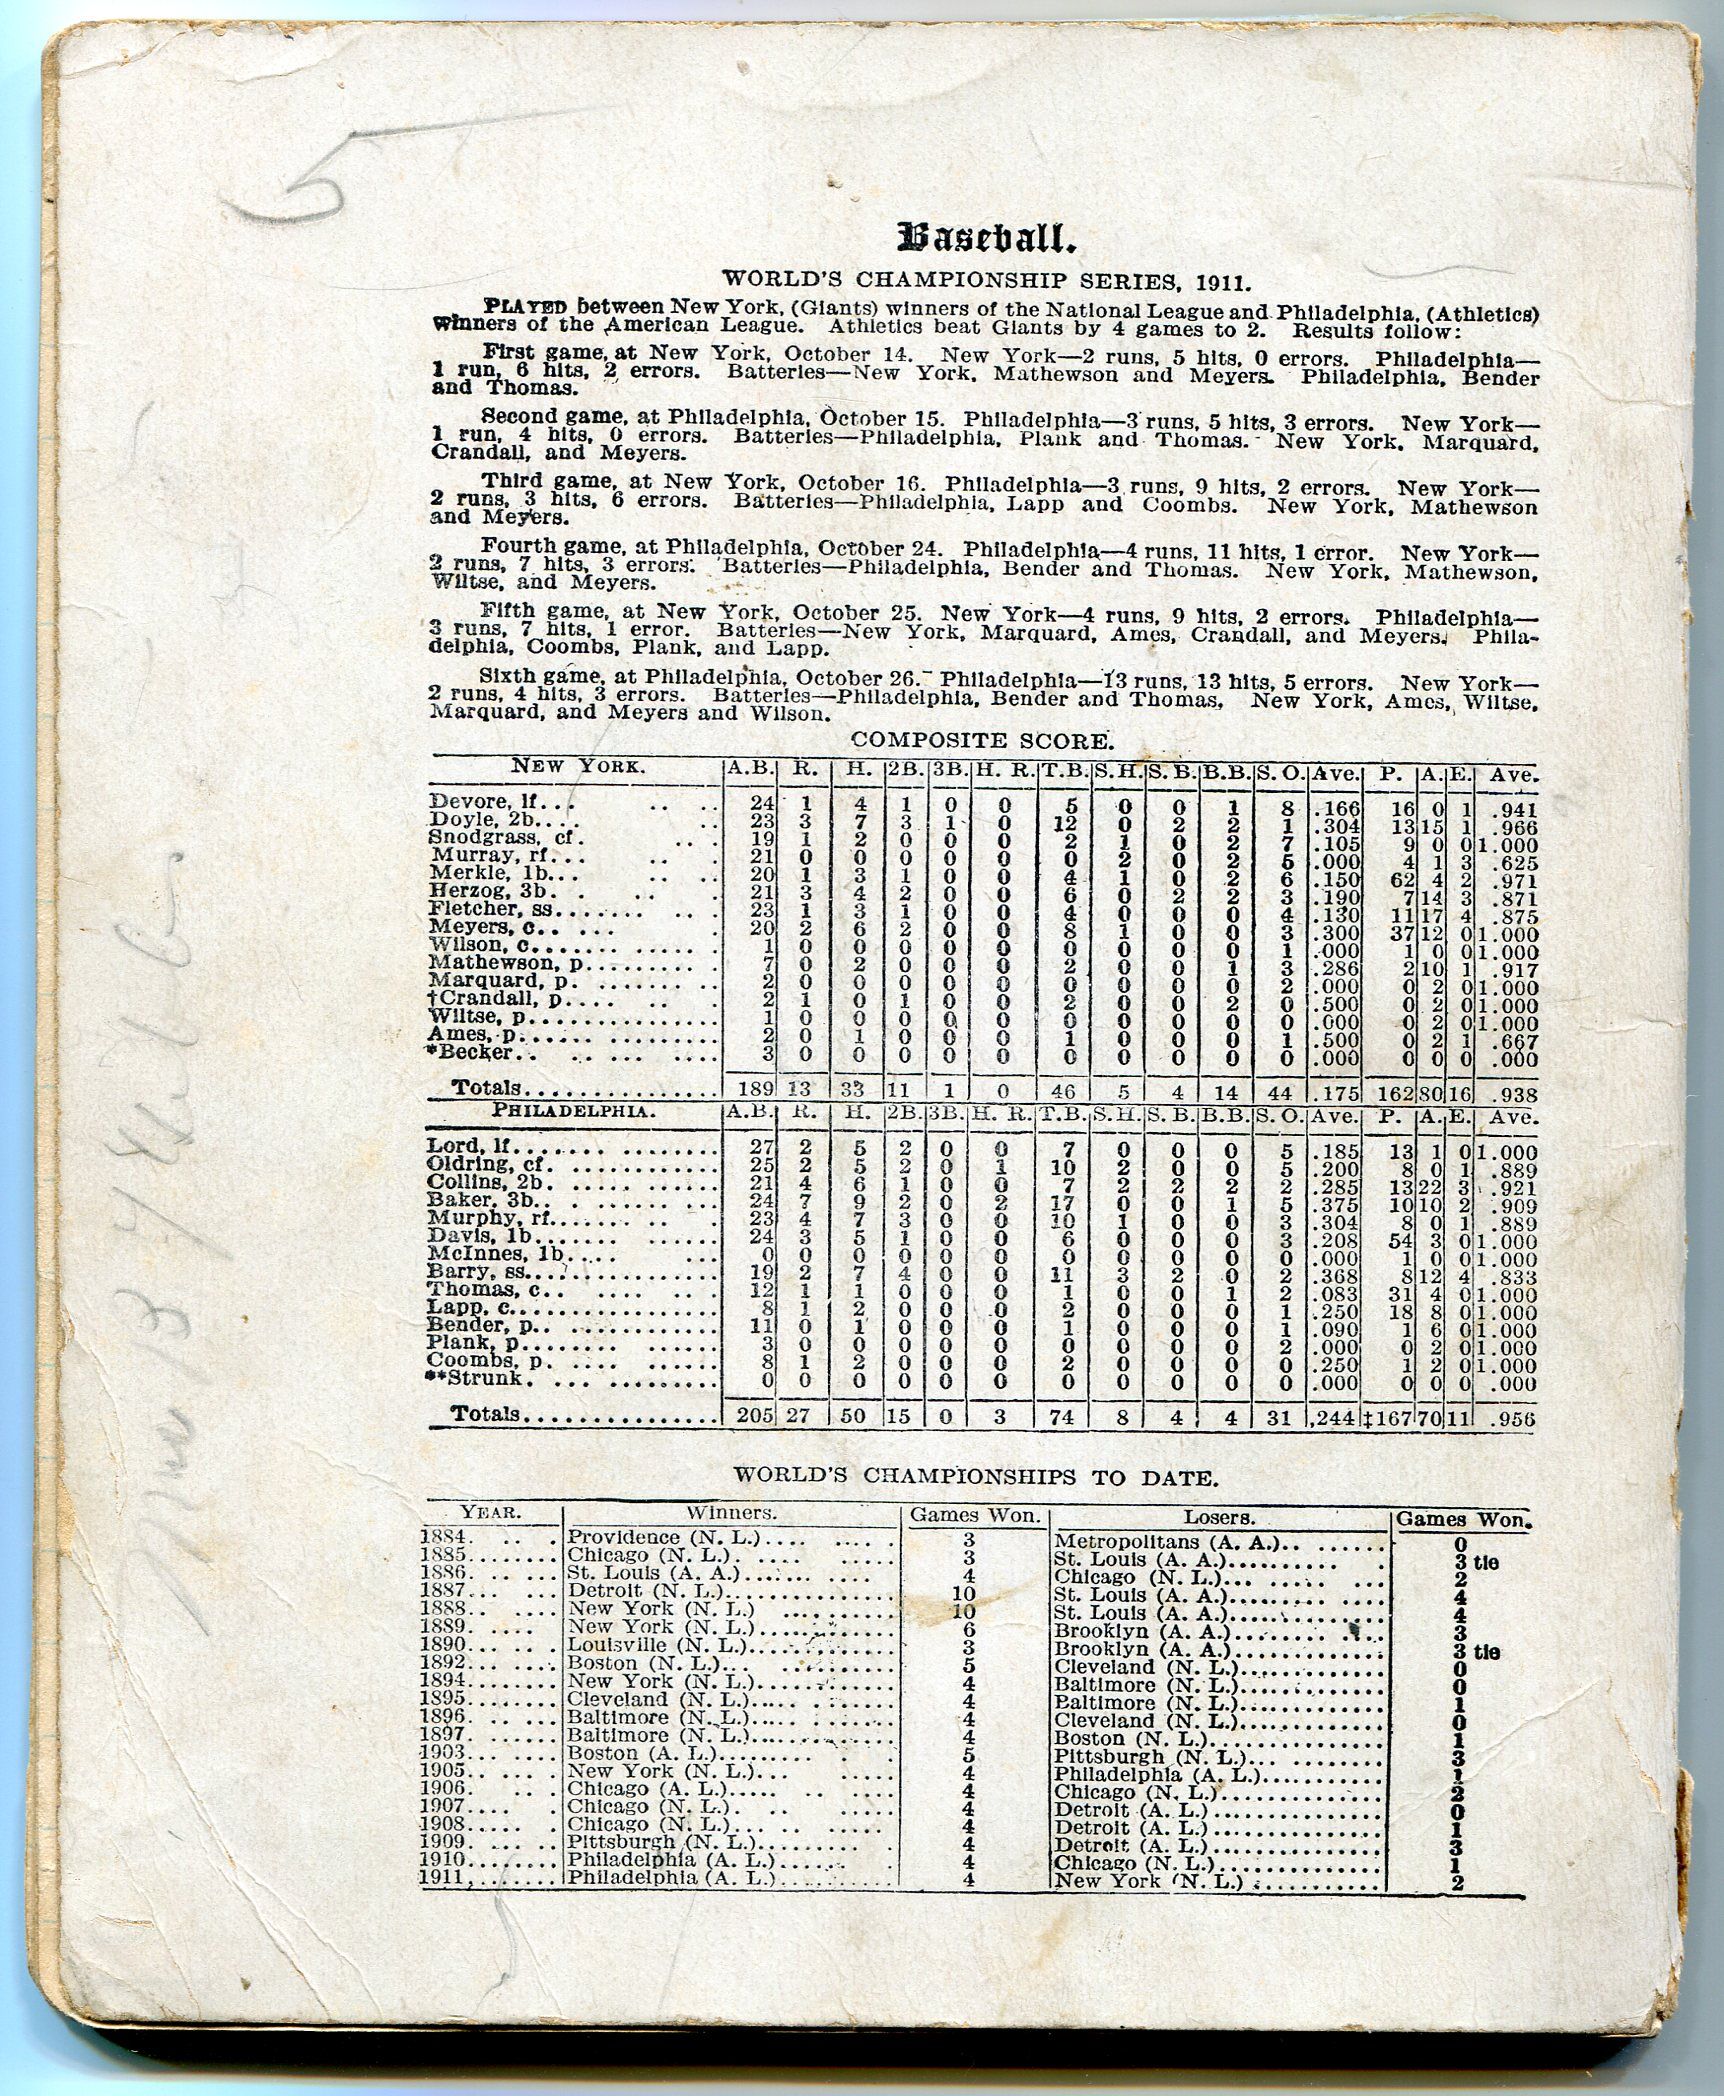 5
Baseball.
WORLD'S CHAMPIONSHIP SERIES, 1911.
PLAYED between New York, (Giants) winners of the National League and Philadelphia, (Athletics)
winners of the American League. Athletics beat Giants by 4 games to 2. Results follow:
First game, at New York, October 14. New York—2 runs, 5 hits, 0 errors. Philadelphia—
1 run, 6 hits, 2 errors. Batteries—New York, Mathewson and Meyers. Philadelphia, Bender
and Thomas.
Second game, at Philadelphia, October 15. Philadelphia—3 runs, 5 hits, 3 errors. New York—
1 run, 4 hits, 0 errors. Batteries—Philadelphia, Plank and Thomas. New York, Marquard,
Crandall, and Meyers.
Third game, at New York, October 16. Philadelphia—3 runs, 9 hits, 2 errors. New York—
2 runs, 3 hits, 6 errors. Batteries—Philadelphia, Lapp and Coombs. New York, Mathewson
and Meyers.
Fourth game, at Philadelphia, October 24. Philadelphia—4 runs, 11 hits, 1 error. New York—
2 runs, 7 hits, 3 errors. Batteries—Philadelphia, Bender and Thomas. New York, Mathewson,
Wiltse, and Meyers.
Fifth game, at New York, October 25. New York—4 runs, 9 hits, 2 errors. Philadelphia—
3 runs, 7 hits, 1 error. Batteries—New York, Marquard, Ames, Crandall, and Meyers. Phila-
delphia, Coombs, Plank, and Lapp.
Sixth game, at Philadelphia, October 26. Philadelphia—13 runs, 13 hits, 5 errors. New York—
2 runs, 4 hits, 3 errors. Batteries—Philadelphia, Bender and Thomas, New York, Ames, Wiltse,
Marquard, and Meyers and Wilson.
COMPOSITE SCORE.
NEW YORK. A.B. R. H. 2B. 3B. H. R. T.B. S.H. S. B. B.B. S. O. Ave. P. A. E. Ave.
Devore, lf... 24 1 4 1 0 0 5 0 0 1 8 .166 16 0 1 .941
Doyle, 2b.... 23 3 7 3 1 0 12 0 2 2 1 .304 13 15 1 .966
Snodgrass, cf. 19 1 2 0 0 0 2 1 0 2 7 .105 9 0 0 1.000
Murray, rf... 21 0 0 0 0 0 0 2 0 2 5 .000 4 1 3 .625
Merkle, 1b... 20 1 3 1 0 0 4 1 0 2 6 .150 62 4 2 .971
Herzog, 3b. 21 3 4 2 0 0 6 0 2 2 3 .190 7 14 3 .871
Fletcher, ss....... 23 1 3 1 0 0 4 0 0 0 4 .130 11 17 4 .875
Meyers, c.. ... 20 2 6 2 0 0 8 1 0 0 3 .300 37 12 0 1.000
Wilson, c........ 1 0 0 0 0 0 0 0 0 0 1 .000 1 0 0 1.000
Mathewson, p.......... 7 0 2 0 0 0 2 0 0 1 3 .286 2 10 1 .917
Marquard, p. ........ 2 0 0 0 0 0 0 0 0 0 2 .000 0 2 0 1.000
†Crandall, p.... 2 1 0 1 0 0 2 0 0 2 0 .500 0 2 0 1.000
Wiltse, p............... 1 0 0 0 0 0 0 0 0 0 0 .000 0 2 0 1.000
Ames, p...... ......... 2 0 1 0 0 0 1 0 0 0 1 .500 0 2 1 .667
*Becker.. .. .... .... 3 0 0 0 0 0 0 0 0 0 0 .000 0 0 0 .000
Totals................ 189 13 33 11 1 0 46 5 4 14 44 .175 162 80 16 .938
PHILADELPHIA. A.B. R. H. 2B. 3B. H. R. T.B. S.H. S. B. B.B. S. O. Ave. P. A. E. Ave.
Lord, lf........ ........ 27 2 5 2 0 0 7 0 0 0 5 .185 13 1 0 1.000
Oldring, cf. ........... 25 2 5 2 0 1 10 2 0 0 5 .200 8 0 1 .889
Collins, 2b. ..... ...... 21 4 6 1 0 0 7 2 2 2 2 .285 13 22 3 .921
Baker, 3b.. . ..... ... 24 7 9 2 0 2 17 0 0 1 5 .375 10 10 2 .909
Murphy, rf....... .. . 23 4 7 3 0 0 10 1 0 0 3 .304 8 0 1 .889
Davis, 1b....... ...... 24 3 5 1 0 0 6 0 0 0 3 .208 54 3 0 1.000
McInnes, 1b.... ... 0 0 0 0 0 0 0 0 0 0 0 .000 1 0 0 1.000
Barry, ss............... 19 2 7 4 0 0 11 3 2 0 2 .368 8 12 4 .833
Thomas, c.. .... ..... 12 1 1 0 0 0 1 0 0 1 2 .083 31 4 0 1.000
Lapp, c................ 8 1 2 0 0 0 2 0 0 0 1 .250 18 8 0 1.000
Bender, p.. ........... 11 0 1 0 0 0 1 0 0 0 1 .090 1 6 0 1.000
Plank, p........ ...... 3 0 0 0 0 0 0 0 0 0 2 .000 0 2 0 1.000
Coombs, p. .... ...... 8 1 2 0 0 0 2 0 0 0 0 .250 1 2 0 1.000
**Strunk. ... ......... 0 0 0 0 0 0 0 0 0 0 0 .000 0 0 0 .000
Totals................ 205 27 50 15 0 3 74 8 4 4 31 .244 ‡167 70 11 .956
WORLD'S CHAMPIONSHIPS TO DATE.
YEAR. Winners. Games Won. Losers. Games Won.
1884. .. . Providence (N. L.).... 3 Metropolitans (A. A.).. ...... 0
1885........ Chicago (N. L.). .... 3 St. Louis (A. A.).......... 3 tie
1886. .. ... St. Louis (A. A.)....... 4 Chicago (N. L.)... ..... ... 2
1887... ... Detroit (N. L.)............... 10 St. Louis (A. A.)........ .... 4
1888.. .... New York (N. L.) ......... 10 St. Louis (A. A.)............. 4
1889. .... New York (N. L.)............ 6 Brooklyn (A. A.)........ .... 3
1890... ... . Louisville (N. L.)............ 3 Brooklyn (A. A.)............. 3 tie
1892... .... Boston (N. L.)... .......... 5 Cleveland (N. L.)............. 0
1894........ New York (N. L.)............ 4 Baltimore (N. L.)............. 0
1895........ Cleveland (N. L.)..... ....... 4 Baltimore (N. L.)............. 1
1896. .. ... Baltimore (N. L.)..... ....... 4 Cleveland (N. L.)............. 0
1897. ...... Baltimore (N. L.)..... ....... 4 Boston (N. L.).. ........ 1
1903... .... Boston (A. L.)......... . . 5 Pittsburgh (N. L.)... ........ 3
1905.. .... . New York (N. L.)... ..... 4 Philadelphia (A. L.)........... 1
1906. .. . Chicago (A. L.)..... .. .... 4 Chicago (N. L.)............... 2
1907.... . Chicago (N. L.). .. ..... 4 Detroit (A. L.)............... 0
1908..... . Chicago (N. L.)... .. ..... 4 Detroit (A. L.)............... 1
1909. ... .. Pittsburgh (N. L.)......... . 4 Detroit (A. L.)............... 3
1910........ Philadelphia (A. L.)...... . 4 Chicago (N. L.).............. 1
1911........ Philadelphia (A. L.).......... 4 New York (N. L.)........... 2